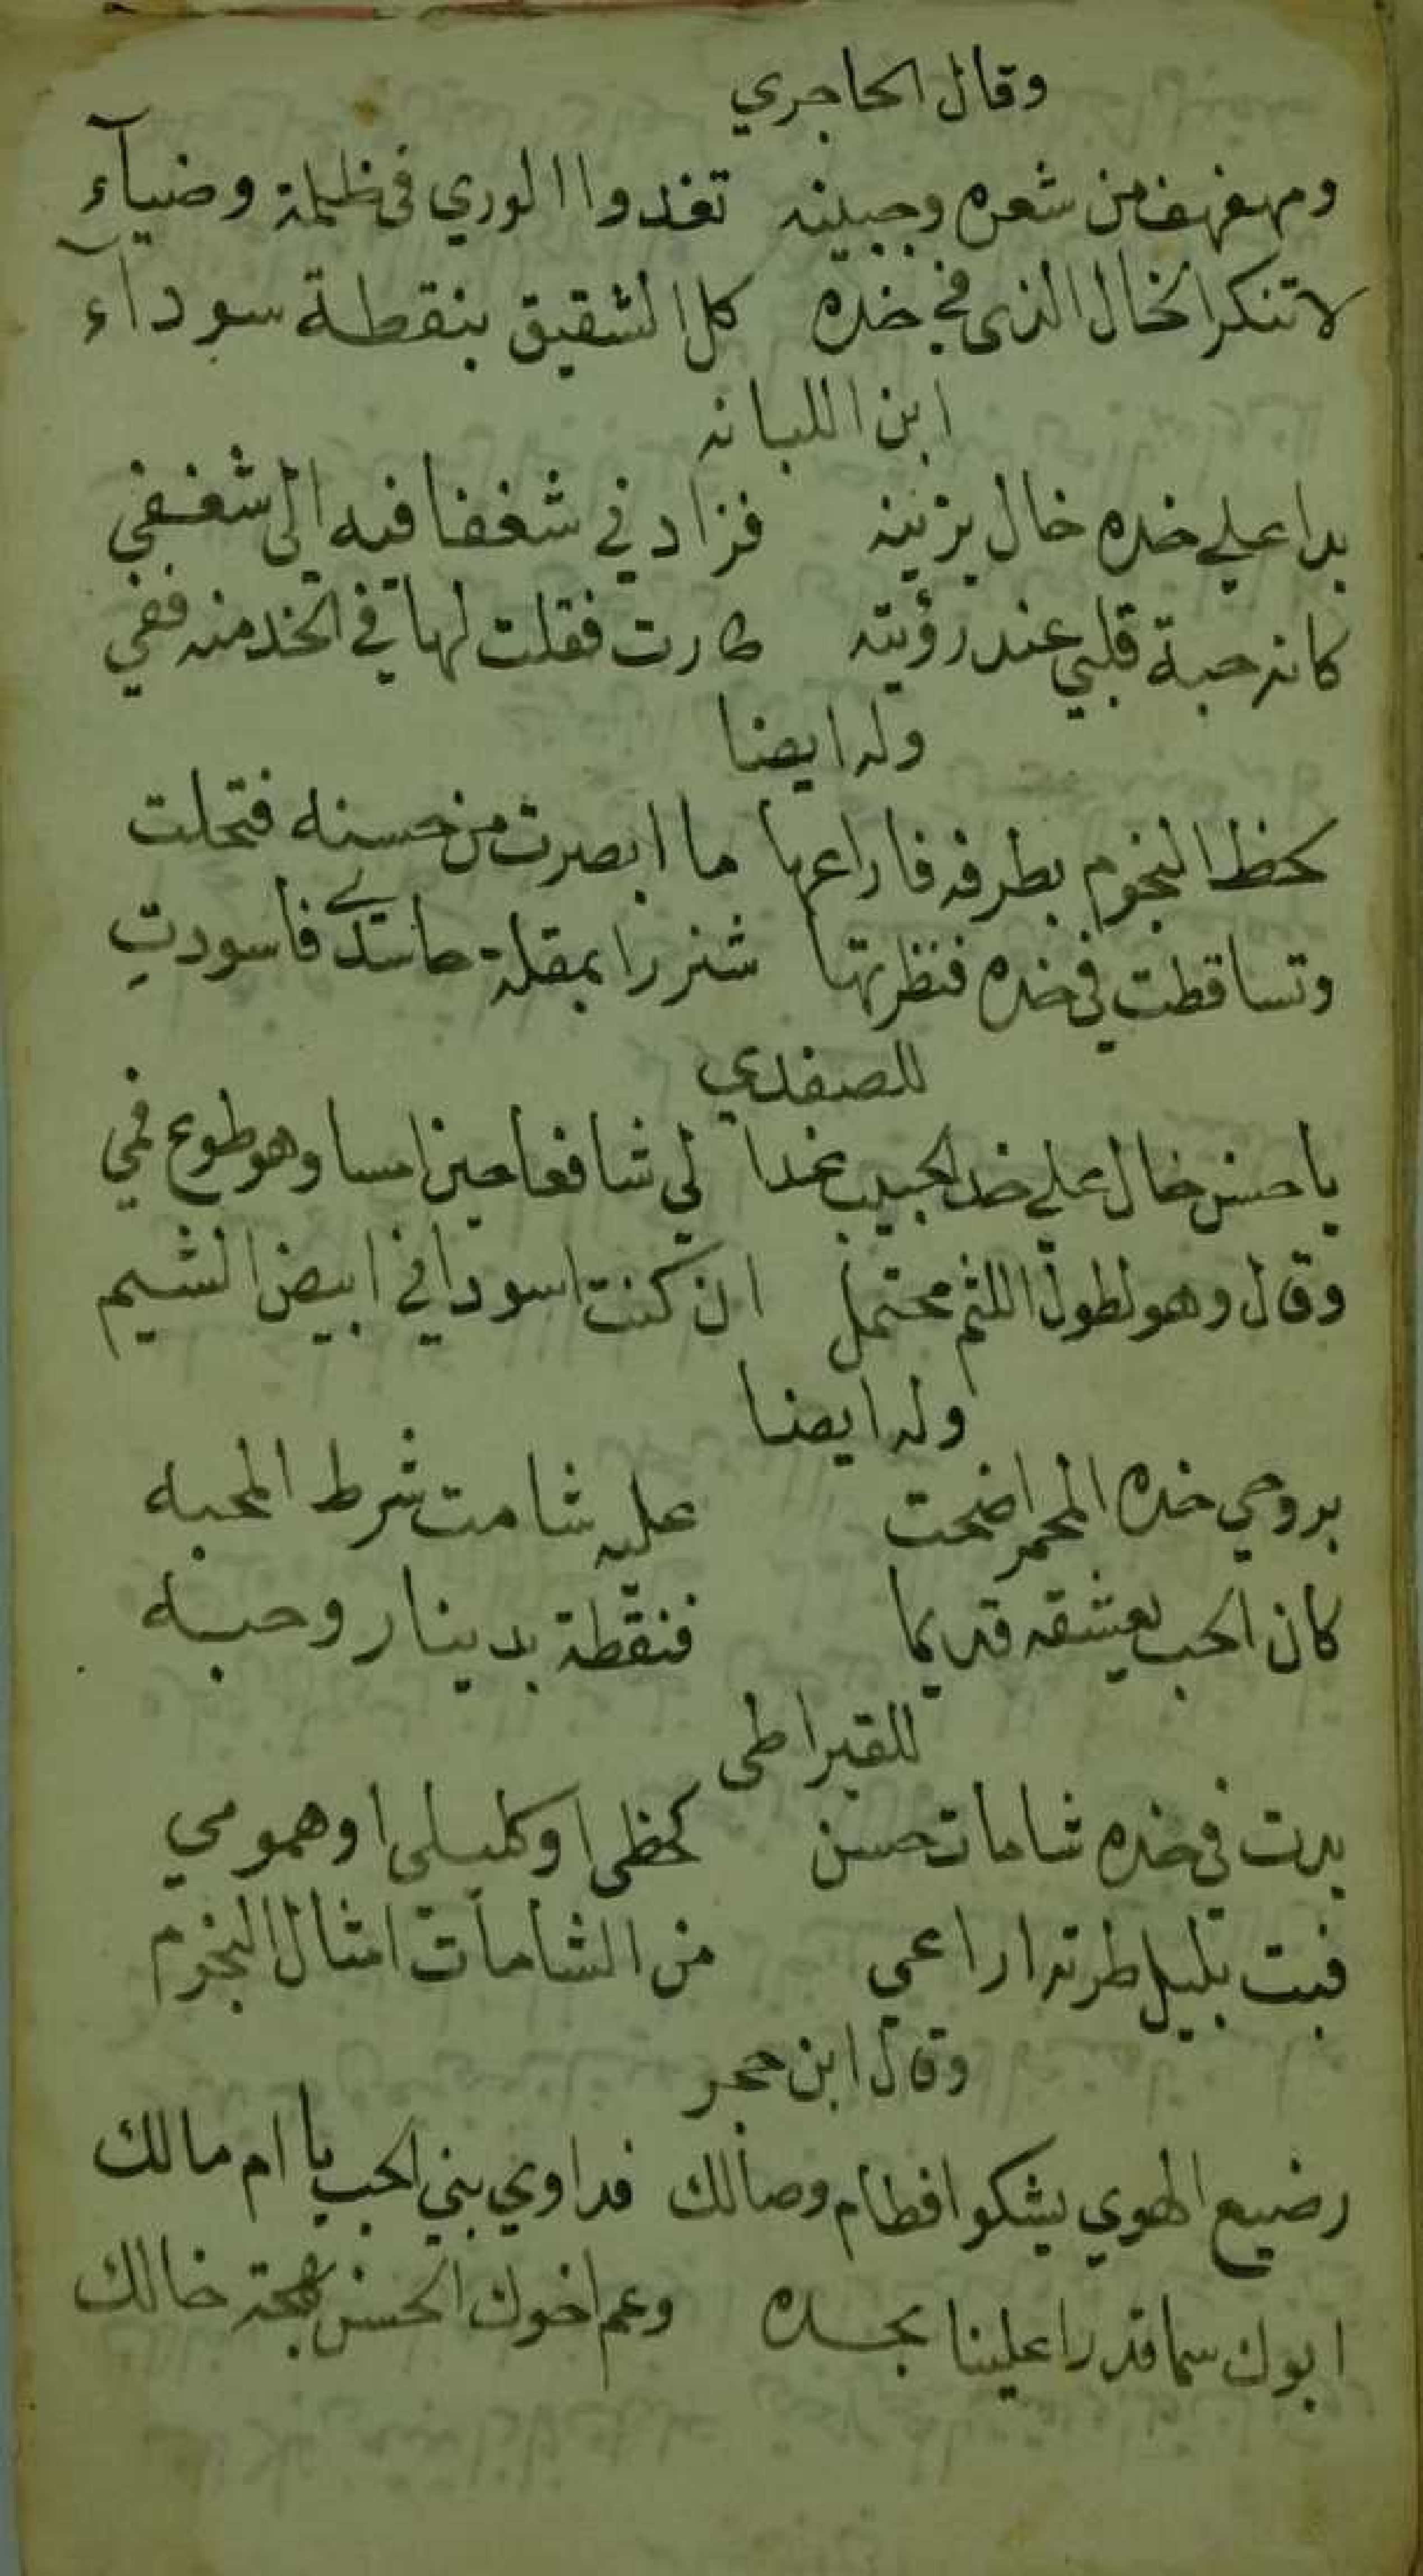 وقال الحاجري
ومهفهف من شعره وجبينه تغدوا الورى في ظلمة وضيآء
لا تنكر الخال الذي في خده كل الشقيق بنقطة سودآء
ابن اللبانه
بدا على خده خال يزينه فزادني شغفا فيه الى شغفي
كانه حبة قلبي عند رؤيته طارت فقلت لها في الخد منه قفي
وله ايضا
لحظ النجوم بطرفه فاراعها ما ابصرت من حسنه فتخلت
وتساقطت في خده فنظرتها شزرا بمقلة حاسد فاسودتِ
للصفدي
يا حسن خال على خد الحبيب غدا لي شافعا حين امسا وهو طوع فمي
وقال وهو لطول اللثم محتمل ان كنت اسود اني ابيض الشيم
وله ايضا
بروحي خده المحمر اضحت عليه شامت شرط المحبه
كان الحب يعشقه قديما فنقطة بدينار وحبه
للقيراطي
بدت في خده شامات حسن كحظي او كليلي او همومي
فبت بليل طرته اراعي من الشامات امثال النجوم
وقال ابن حجر
رضيع الهوي يشكوا فطام وصالك فداوي بني الحب يا ام مالك
ابوك سما قدرا علينا بجده وعم اخوك الحسن بهجة خالك